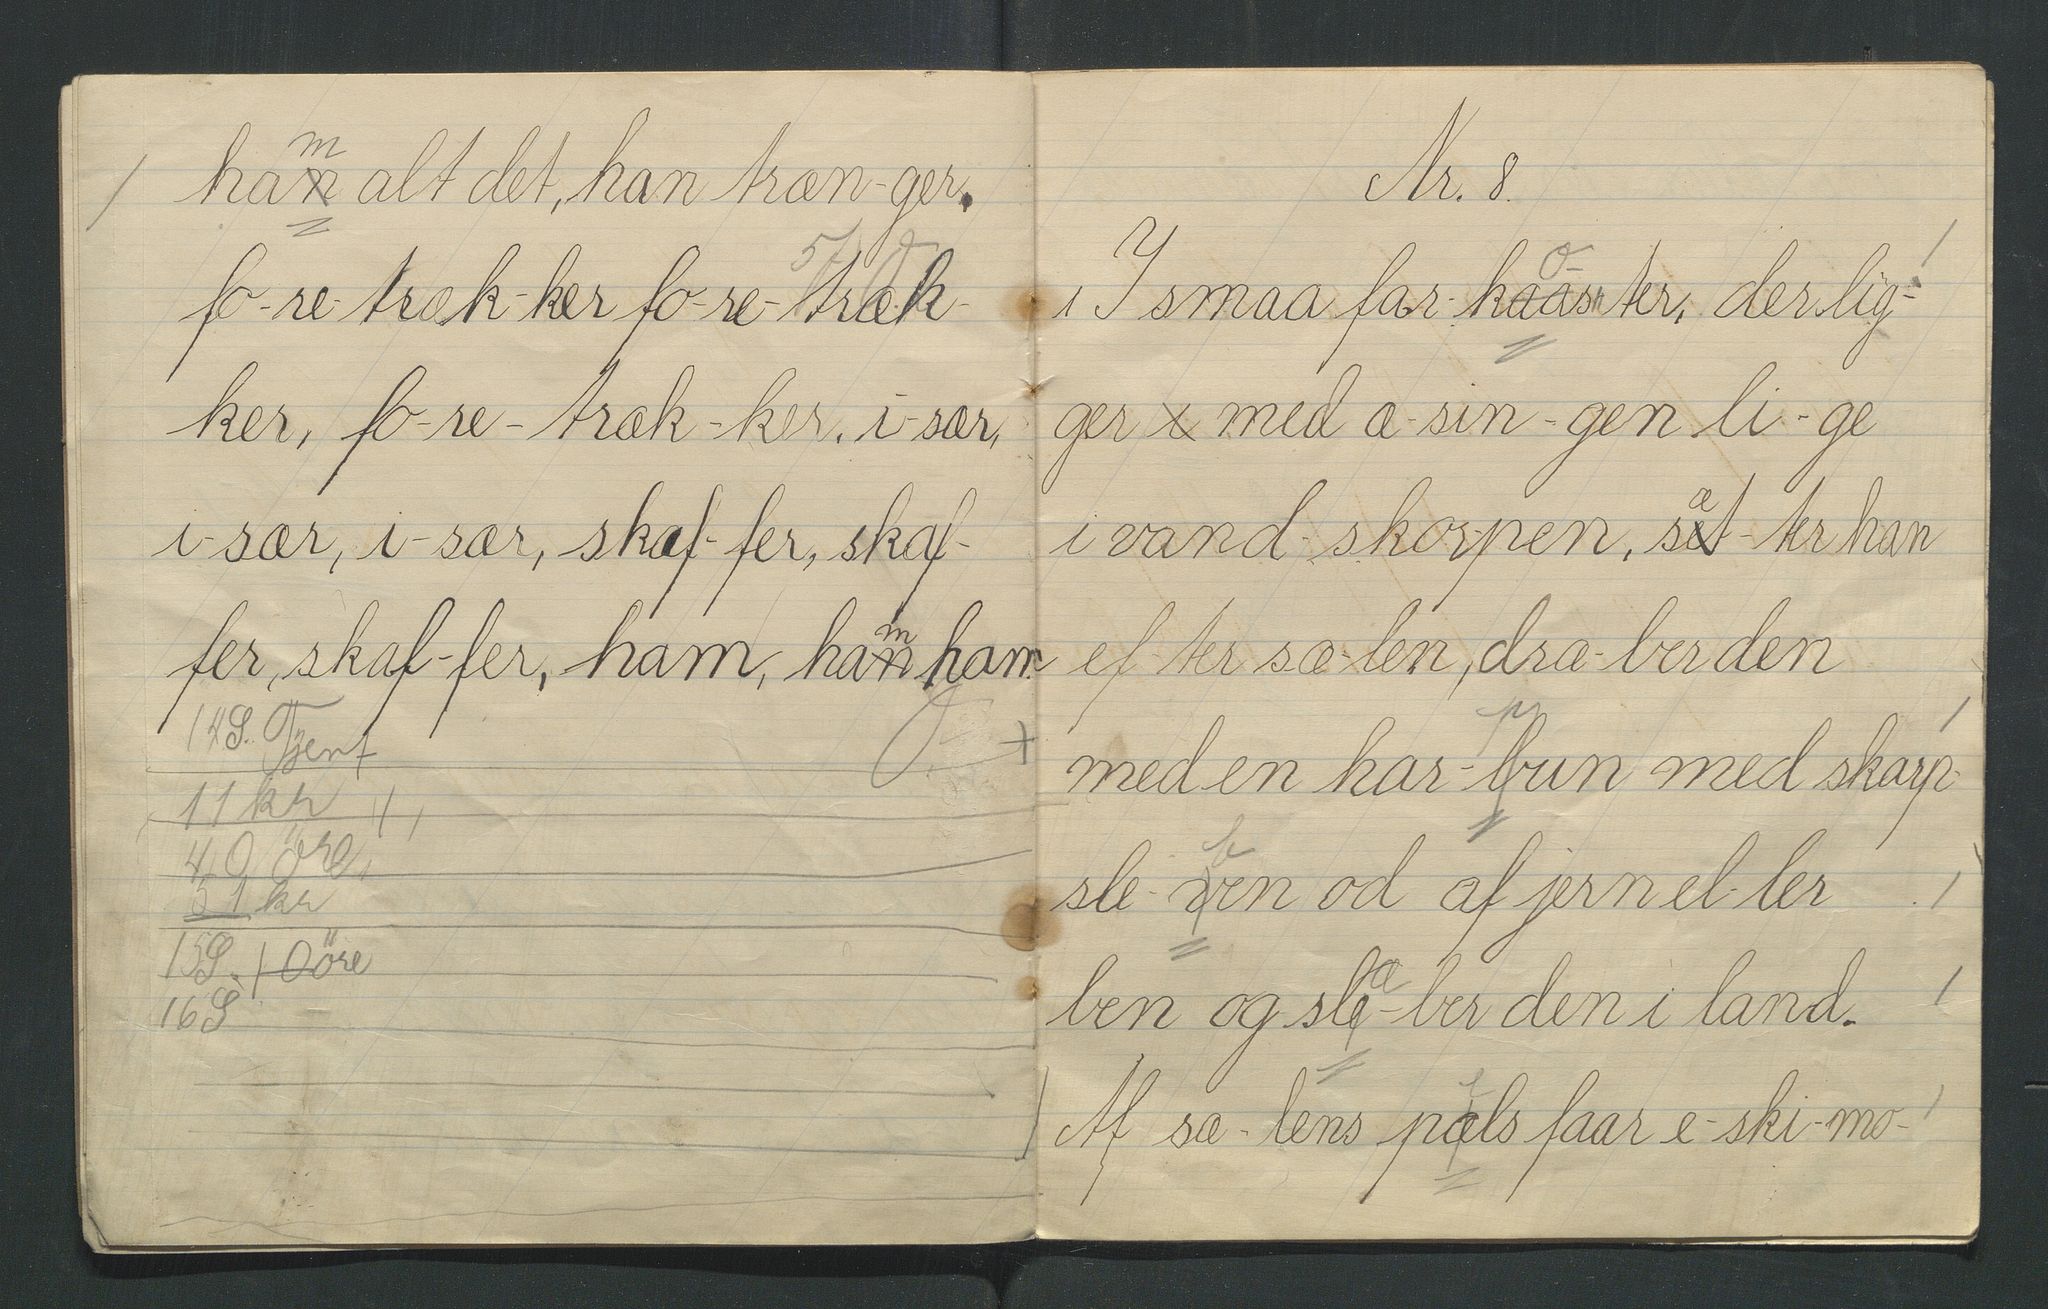 m
han alt det, han træn-ger.
fo-re-træk-ker fo-re-træk-
ker, fo-re-træk-ker. i-sær,
i-sær, i-sær, skaf-fer, skaf-
m
fer, skaf-fer, ham, han ham
14S. Tjent
11 kr
40 öre,
51 kr
15S. 10 öre
16S
Nr. 8.
o
i I smaa far-kaaster, der lig-
ger i med æ-sin-gen li-ge
æ
i vand-skorpen, set-ter han
ef-ter sæ-len, dræ-ber den
p
med en har-bun med skarp-
b
sle-ven od af jern el-ler
æ
ben og sle-ber den i land.
Af sæ-lens pæls faar e-ski-mo-